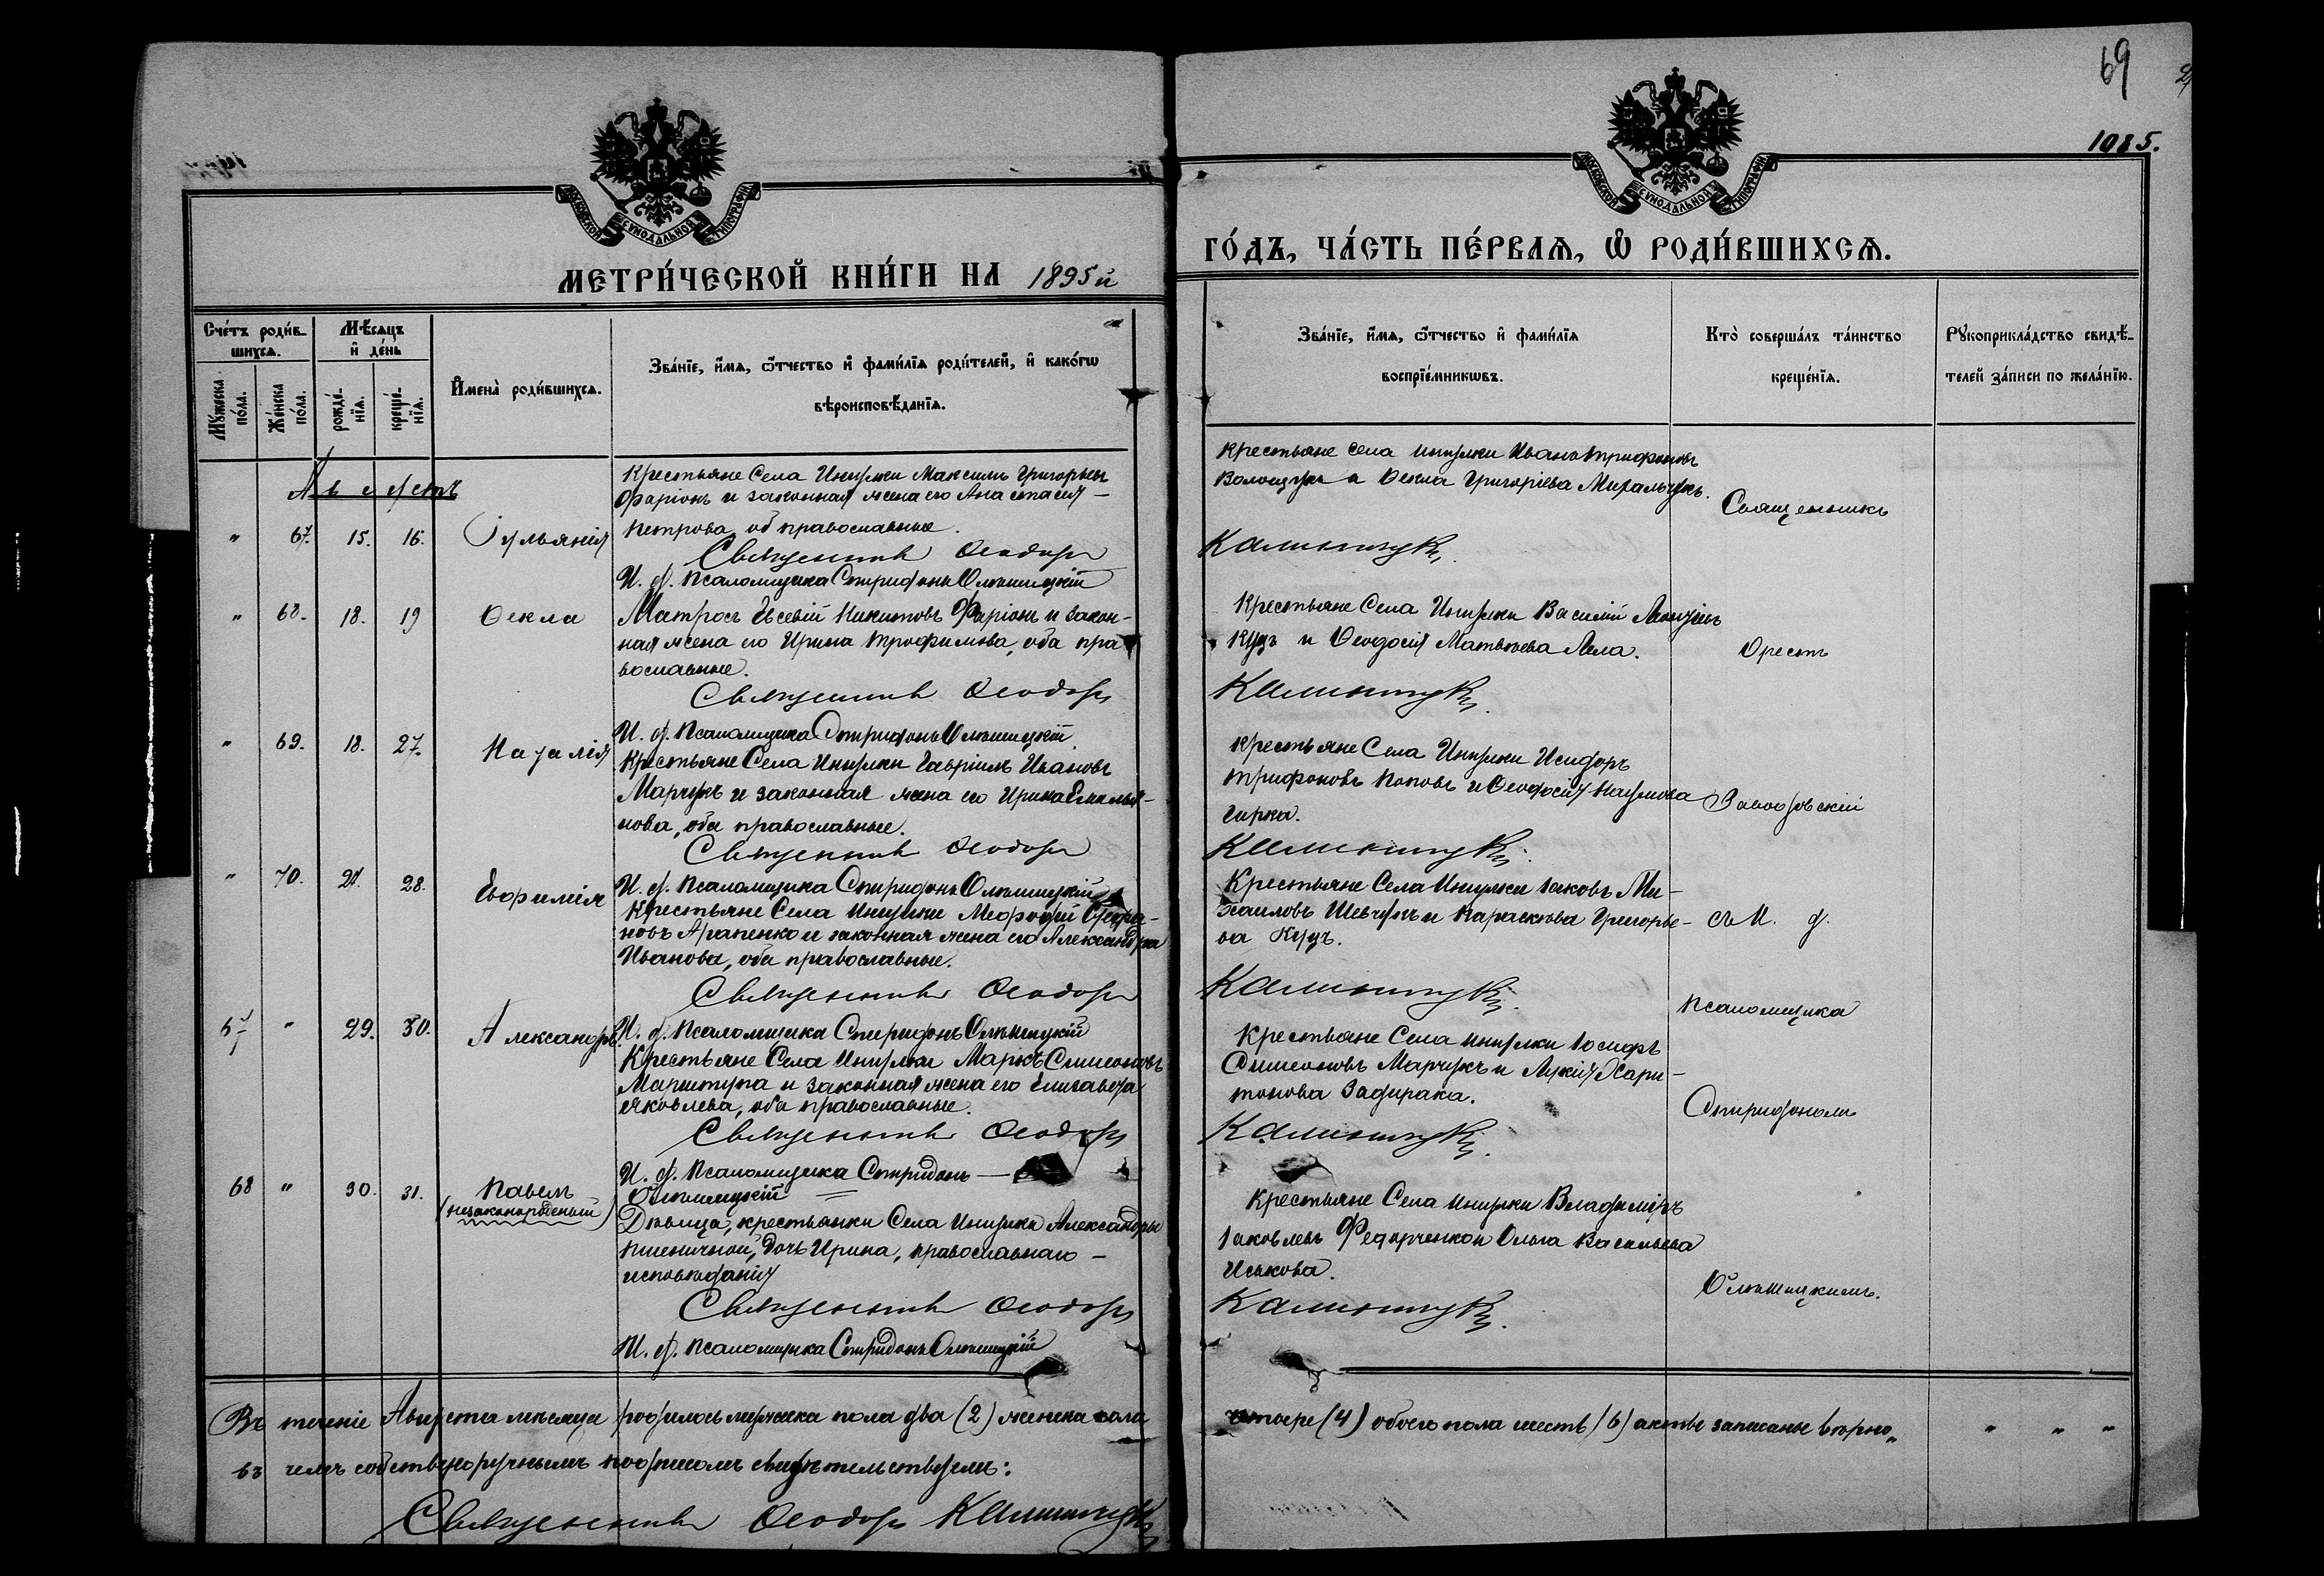 69
1085.
МОСКОВСКОЙ СѴНОДАЛЬНОЙ ТИПОГРАФІИ
МОСКОВСКОЙ СѴНОДАЛЬНОЙ ТИПОГРАФІИ
МЕТРИ́ЧЕСКОЙ КНИ́ГИ НА 1895й
ГО́ДЪ, ЧА́СТЬ ПЕ́РВАѦ, Ѡ҆ РОДИ́ВШИХСѦ.
Сче́тъ роди́в-
шихсѧ.
Мꙋ́жеска по́ла.
Же́нска по́ла.
Мѣ́сѧцъ
и҆ де́нь
рожде́-
нїѧ.
креще́-
нїѧ.
И҆мена̀ роди́вшихсѧ.
Зва́нїе, и҆́мѧ, ѻ҆́тчество и҆ фами́лїѧ роди́телей, и҆ како́гѡ
вѣроисповѣ́данїѧ.
Зва́нїе, и҆́мѧ, ѻ҆́тчество и҆ фами́лїѧ
воспрїе́мникѡвъ.
Кто̀ соверша́лъ та́инство
креще́нїѧ.
Рꙋкоприкла́дство свидѣ́-
телей за́писи по жела́нїю.
Августъ
" 67. 15. 16. Іульянія
Крестьяне Села Ингулки Максимъ Григорьевъ
Фаріонъ и законная жена его Анастасія -
Петрова, об православные.
Священникъ Ѳеодоръ
И. д. Псаломщика Спиридонъ Ольшицкій
Крестьяне села Ингулки Иванъ Трифоновъ
Волощукъ и Ѳекла Григоріева Михальчукъ.
Калинчукъ
Священникъ
" 68. 18. 19 Ѳекла
Матросъ Евсевій Никитовъ Фаріонъ и закон-
ная жена его Ирина Трофимова, оба пра
вославные.
Священникъ Ѳеодоръ
И. д. Псаломщика Спиридонъ Ольшицкій
Крестьяне Села Ингулки Василій
Куцъ и Ѳеодосія Матвѣева Лела.
Калинчукъ
Орестъ
" 69. 18. 27. Наталія
Крестьяне Села Ингулки Гавріилъ Ивановъ
Марчукъ и законная жена его Ирина Емелья-
нова, оба православные.
Священникъ Ѳеодоръ
И. д. Псаломщика Спиридонъ Ольшицкій
Крестьяне Села Ингулки Исидоръ
Трифоновъ Поповъ и Ѳеодосія Наумова
Чирка.
Калинчукъ
" 70. 28. Евфимія
Крестьяне Села Ингулки Меѳодій
новъ Арапенко и законная жена его Александра
Иванова, оба православные.
Священникъ Ѳеодоръ
И. д. Псаломщика Спиридонъ Ольшицкій
Крестьяне Села Ингулки Іаковъ Ми-
хаиловъ Шевчукъ и Параскева Григорье-
ва Куцъ.
Калинчукъ
съ И. д.
" 29. 30. Александръ
Крестьяне Села Ингулки Маркъ Симеоновъ
Марштупа и законная жена его Елизавета
Яковлева, оба православные.
Священникъ Ѳеодоръ
И. д. Псаломщика Спиридонъ -
Ольшицкій
Крестьяне Села Ингулки Іосифъ
Симеоновъ Марчукъ и Лукія Хари-
тонова Задирака.
Калинчукъ
Псаломщика
Спиридономъ
68 " 30. 31. Павелъ
(незаконорожденый)
Дѣвица, крестьянки Села Ингулки Александры
Пшеничной, дочь Ирина, православнаго -
исповѣданія
Священникъ Ѳеодоръ
И. д. Псаломщика Спиридонъ Ольшицкій
Крестьяне Села Ингулки Владиміръ
Іаковлевъ Федорченко и Ольга Васильева
Иськова.
Калинчукъ
Ольшицкимъ.
Въ теченіе Августа мѣсяца родилось мужеска пола два (2) женска пола
четыре (4) обоего пола шесть (6) актъ записанъ вѣрно, " " "
въ чемъ собственоручнымъ подписомъ свидѣтельствуемъ:
Священникъ Ѳеодоръ Калинчукъ